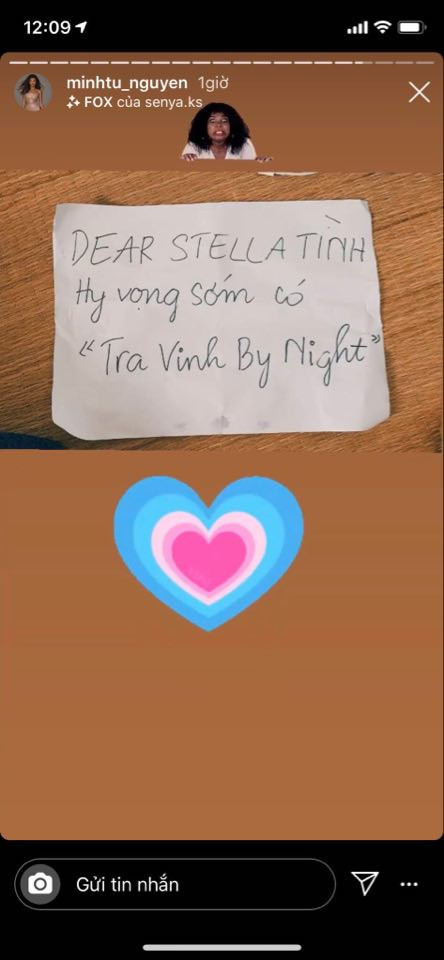 12:09
minhtu_nguyen 1giờ
FOX của senya.ks
DEAR STELLA TÌNH
Hy vọng sớm có
“Tra Vinh By Night”
Gửi tin nhắn